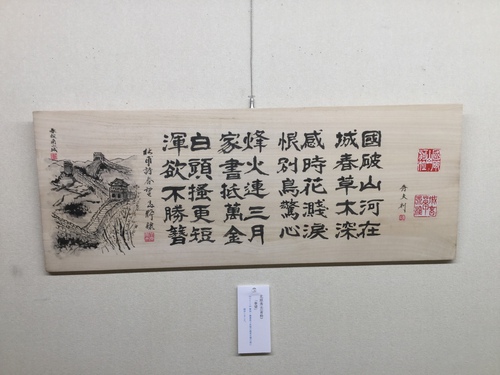 國破山河在
城春草木深
感時花濺涙
恨別鳥驚心
烽火連三月
家書抵萬金
白頭搔更短
渾欲不勝簪
杜甫詩春望